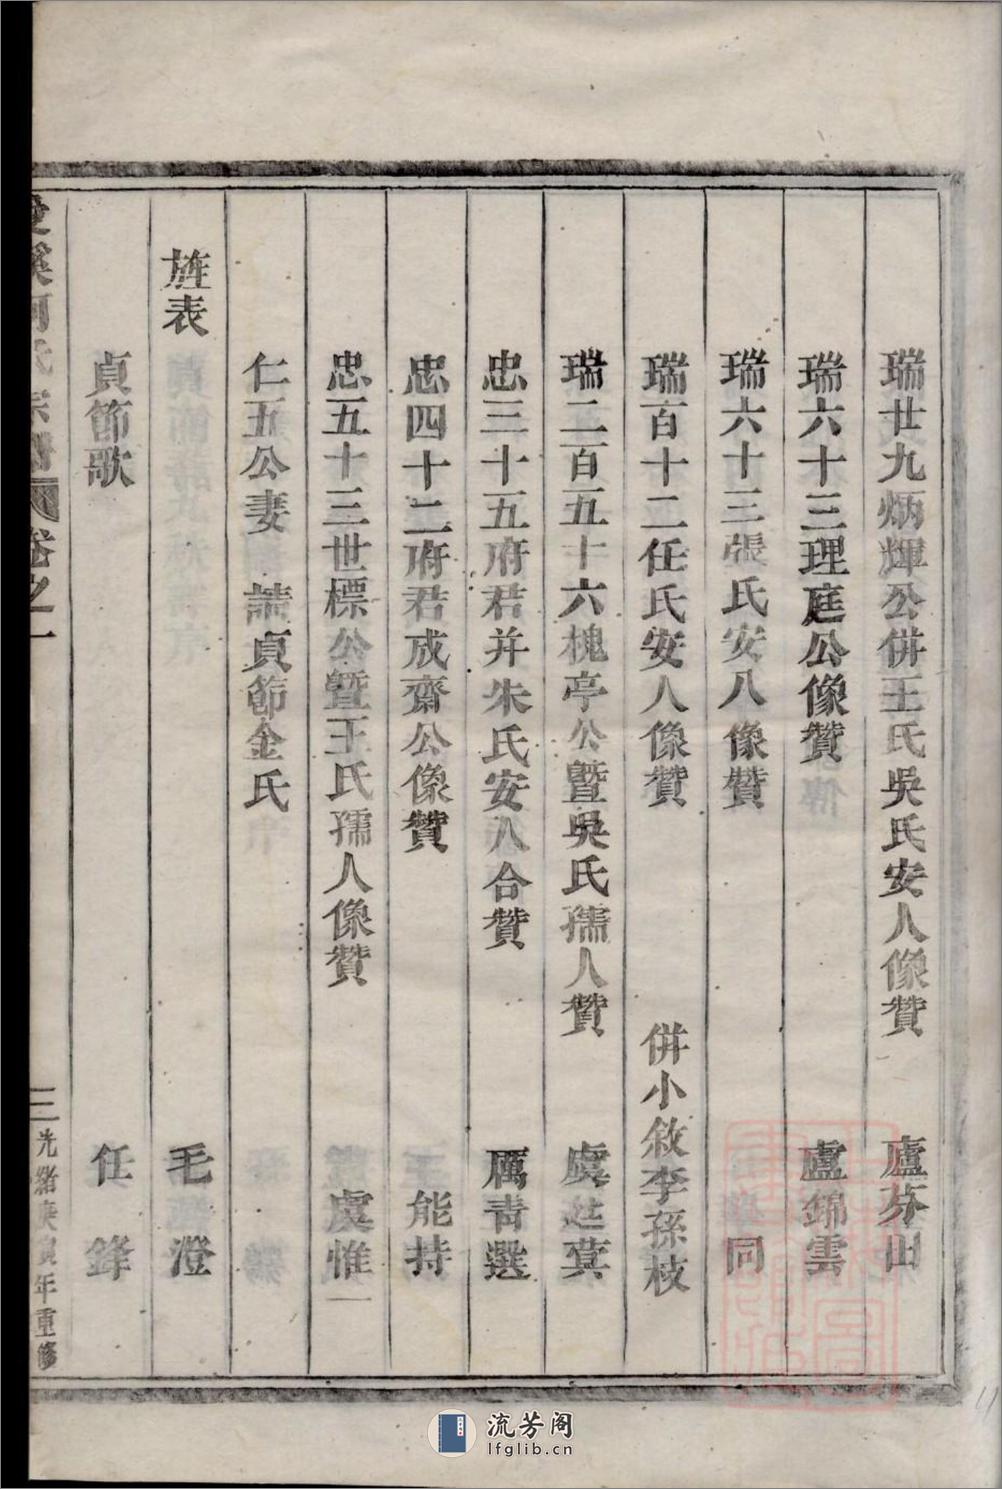 瑞廿九炳輝公併王氏吳氏安人像贊 廬芬田
瑞六十三理庭公像贊 盧錦雲
瑞六十三張氏安人像贊 同
瑞百十二任氏安人像贊 併小敘李孫枝
瑞二百五十六槐亭公暨吳氏孺人贊 虞廷蓂
忠三十五府君并朱氏安人合贊 厲青選
忠四十二府君成齋公像贊 能持
忠五十三世標公暨王氏孺人像贊 虞惟一
仁五公妻 請貞節金氏
旌表 毛澄
貞節歌 任鋒
溪何氏宗譜 卷之一 三 光緒庚寅年重修
流芳阁
lfglib.cn